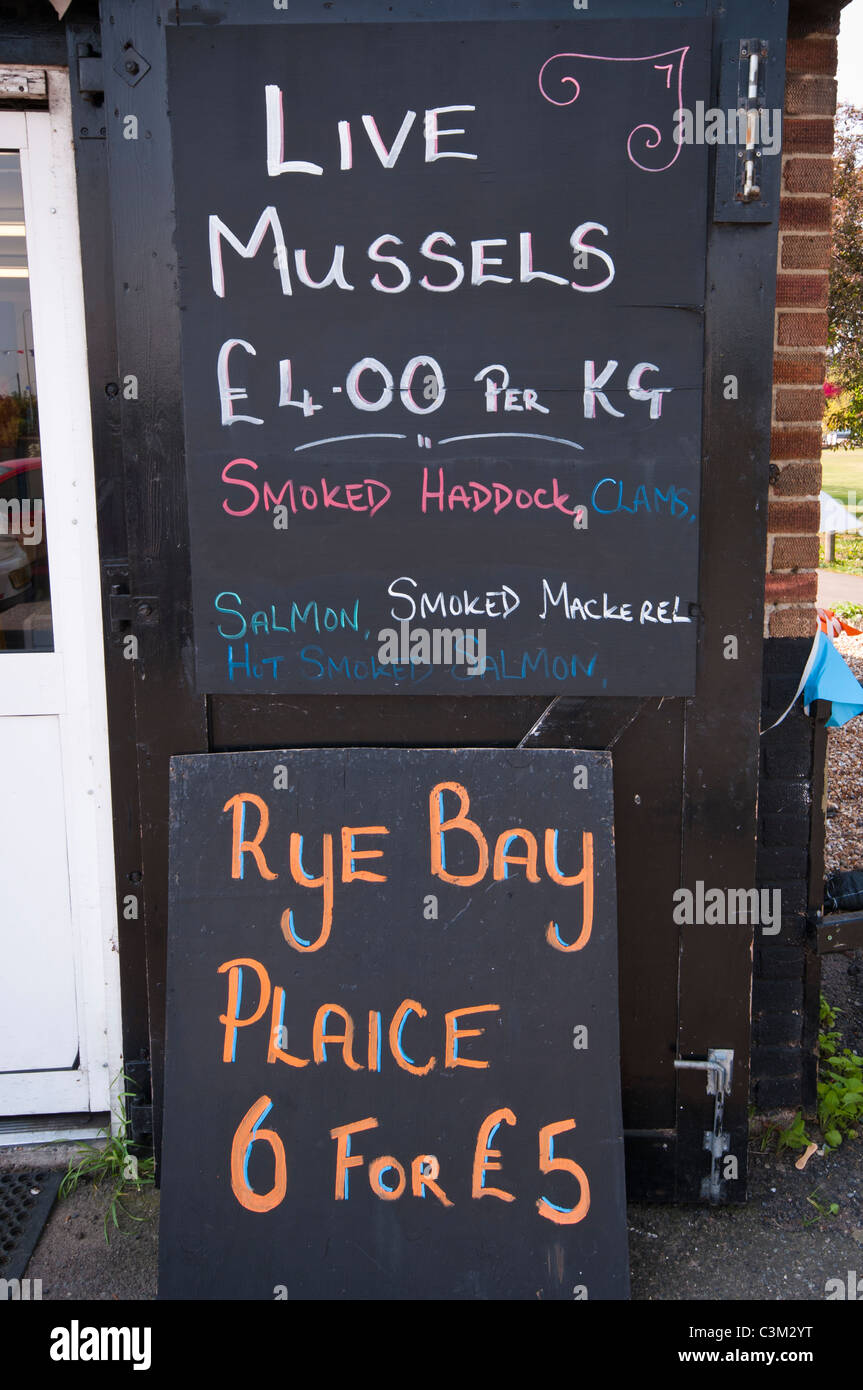 LIVE
MUSSELS
£4.00 PER KG
SMOKED HADDOCK, CLAMS,
SALMON, SMOKED MACKEREL
HOT SMOKED SALMON,
RYE BAY
PLAICE
6 FOR £5
alamy
Image ID: C3M2YT
www.alamy.com